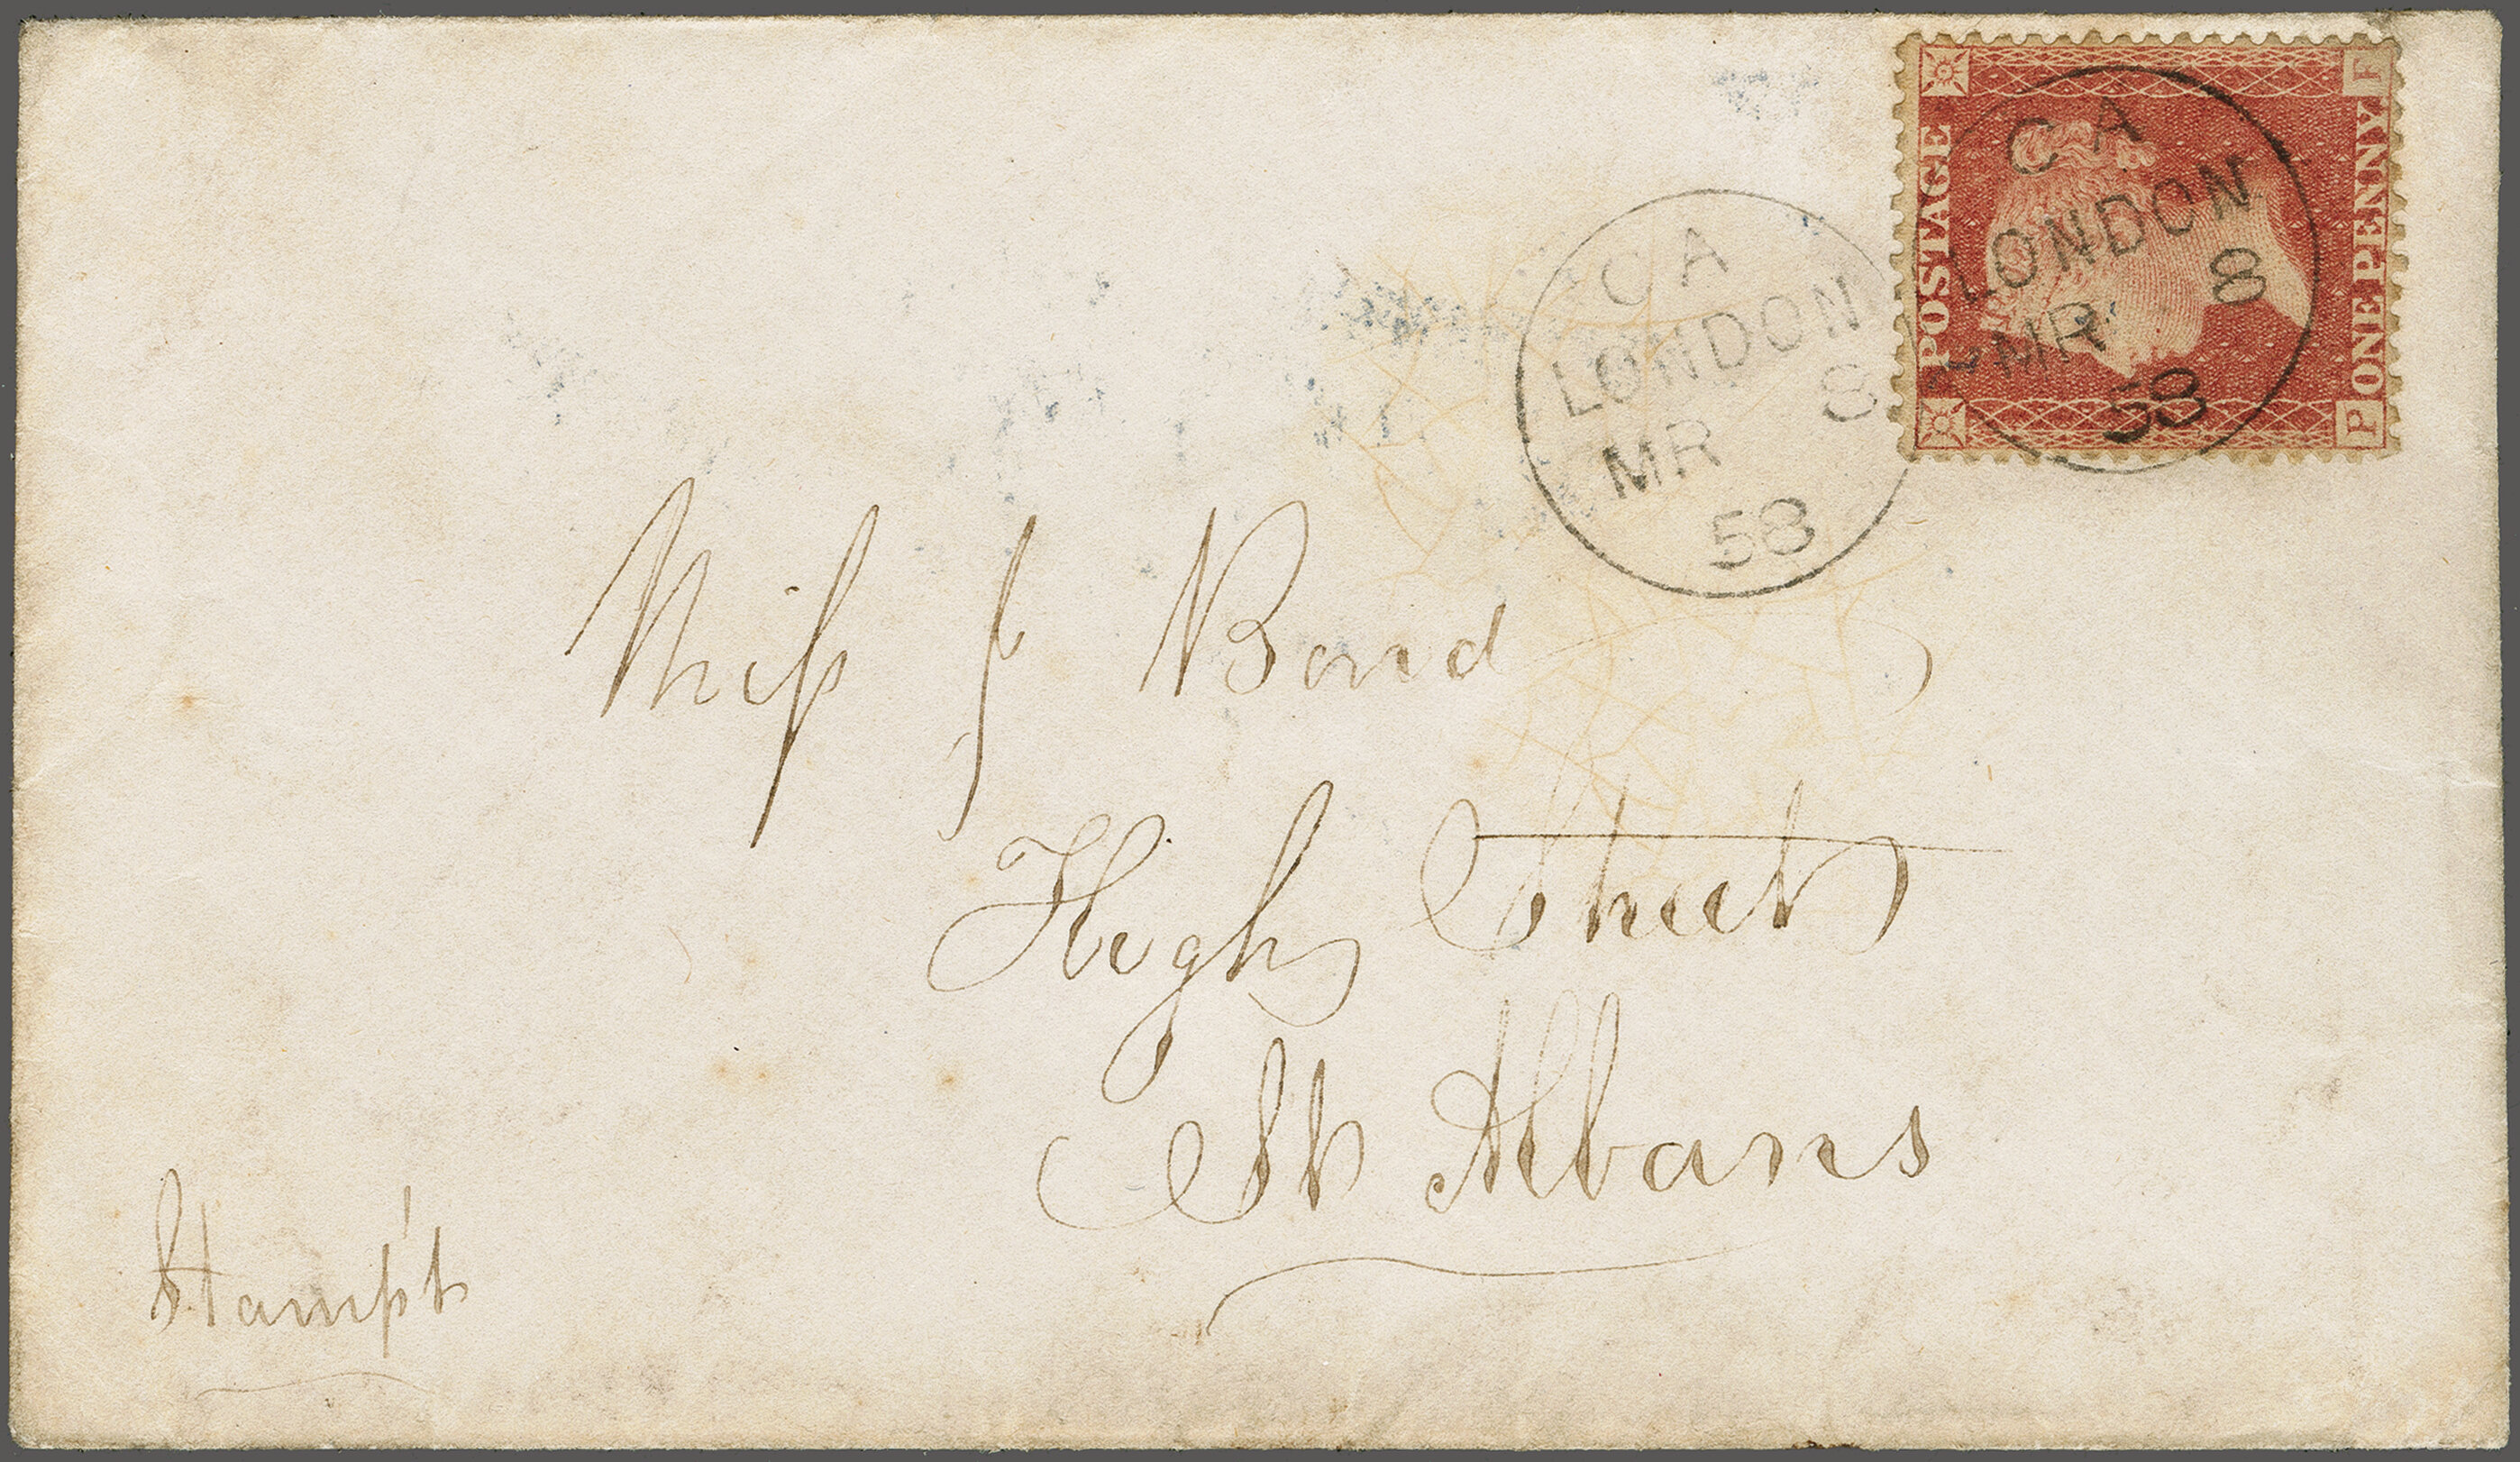 POSTAGE
ONE PENNY
P F
CA
LONDON
MR 8
58
CA
LONDON
MR 8
58
Miss J Bond
High Street
St Albans
Stamp't